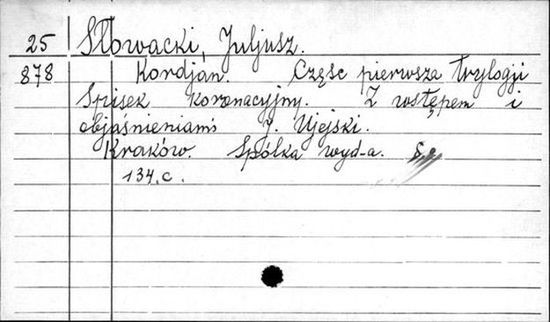 25 Słowacki, Juljusz.
878 Kordjan. Częśc pierwsza trylogji
Spisek koronacyjny. Z wstępem i
objaśnieniami J. Ujejski.
Kraków. Spółka wyd-a.
134.c.